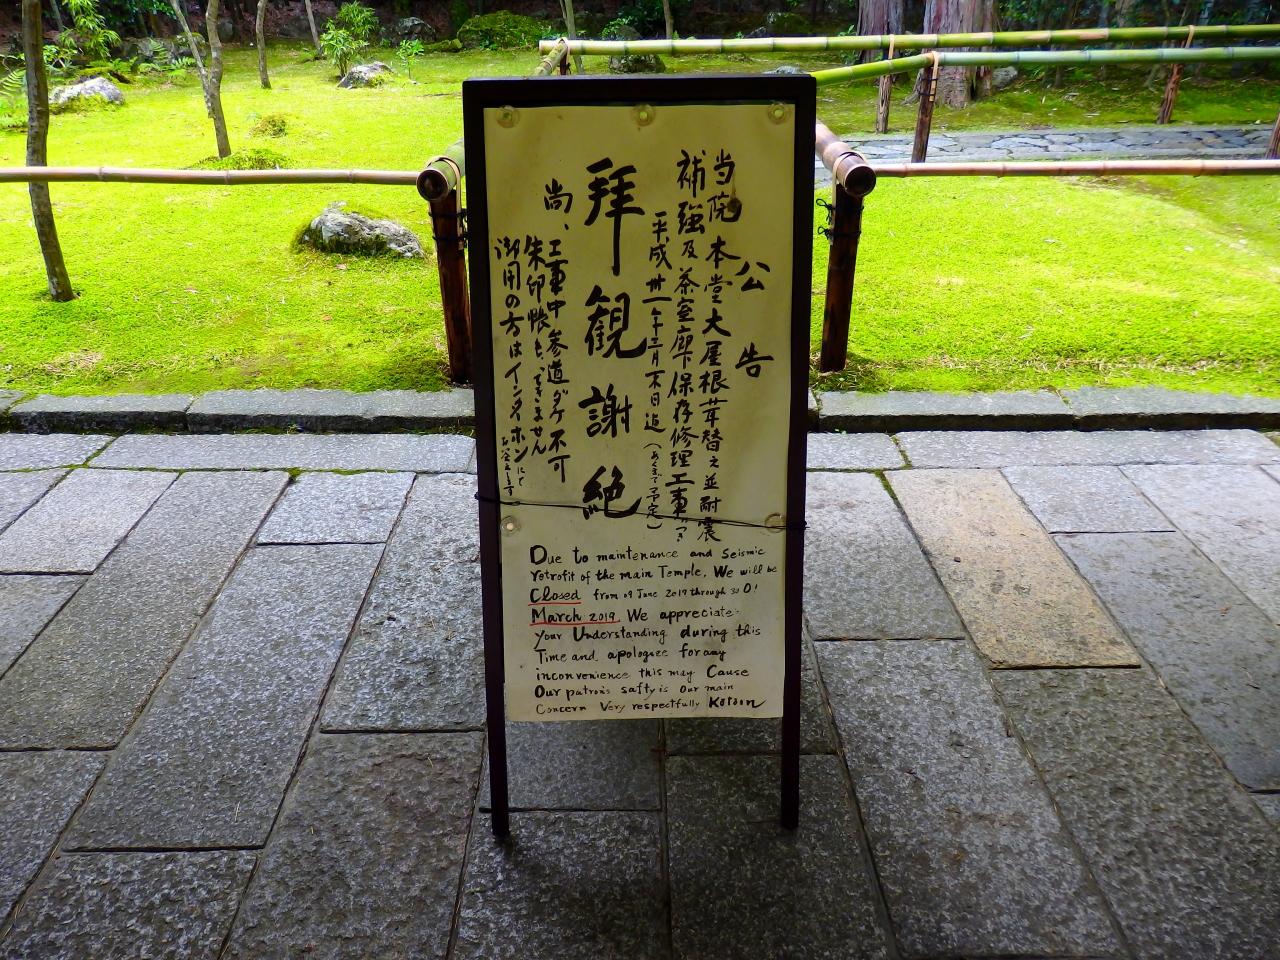 公告
当院本堂大屋根葺替え並耐震
補強及茶室廊下保存修理工事につき
平成卅一年三月不日迄(あくまで予定)
拝観謝絶
尚、工事中参道ダケ不可
朱印帳もできません
御用の方はインターホンにて
お答えします
Due to maintenance and Seismic
retrofit of the main Temple, We will be
Closed from 09 June 2017 through 30 0!
March 2019. We appreciate
Your Understanding during this
Time and apologize for any
inconvenience this may Cause
Our patron's safty is Our main
Concern Very respectfully Kotoin